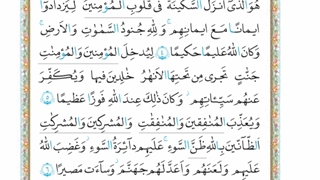 هُوَ الَّذِیْۤ اَنْزَلَ السَّكِیْنَةَ فِیْ قُلُوْبِ الْمُؤْمِنِیْنَ لِیَزْدَادُوْۤا
اِیْمَانًا مَّعَ اِیْمَانِهِمْ ؕ وَ لِلّٰهِ جُنُوْدُ السَّمٰوٰتِ وَ الْاَرْضِ ؕ
وَ كَانَ اللّٰهُ عَلِیْمًا حَكِیْمًا ﴿۴﴾ لِّیُدْخِلَ الْمُؤْمِنِیْنَ وَ الْمُؤْمِنٰتِ
جَنّٰتٍ تَجْرِیْ مِنْ تَحْتِهَا الْاَنْهٰرُ خٰلِدِیْنَ فِیْهَا وَ یُكَفِّرَ
عَنْهُمْ سَیِّاٰتِهِمْ ؕ وَ كَانَ ذٰلِكَ عِنْدَ اللّٰهِ فَوْزًا عَظِیْمًا ﴿۵﴾
وَّ یُعَذِّبَ الْمُنٰفِقِیْنَ وَ الْمُنٰفِقٰتِ وَ الْمُشْرِكِیْنَ وَ الْمُشْرِكٰتِ
الظَّآنِّیْنَ بِاللّٰهِ ظَنَّ السَّوْءِ ؕ عَلَیْهِمْ دَآىِٕرَةُ السَّوْءِ ۚ وَ غَضِبَ اللّٰهُ
عَلَیْهِمْ وَ لَعَنَهُمْ وَ اَعَدَّ لَهُمْ جَهَنَّمَ ؕ وَ سَآءَتْ مَصِیْرًا ﴿۶﴾